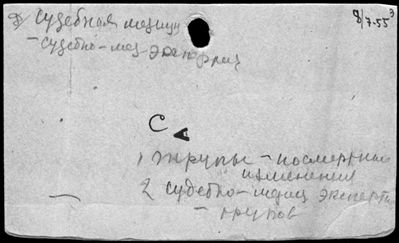 Судебная медиц
8/7-55
- судебно-мед. экспертиз
С
1 Трупы - посмертные
изменения
2 судебно-медиц эксперти
- трупов